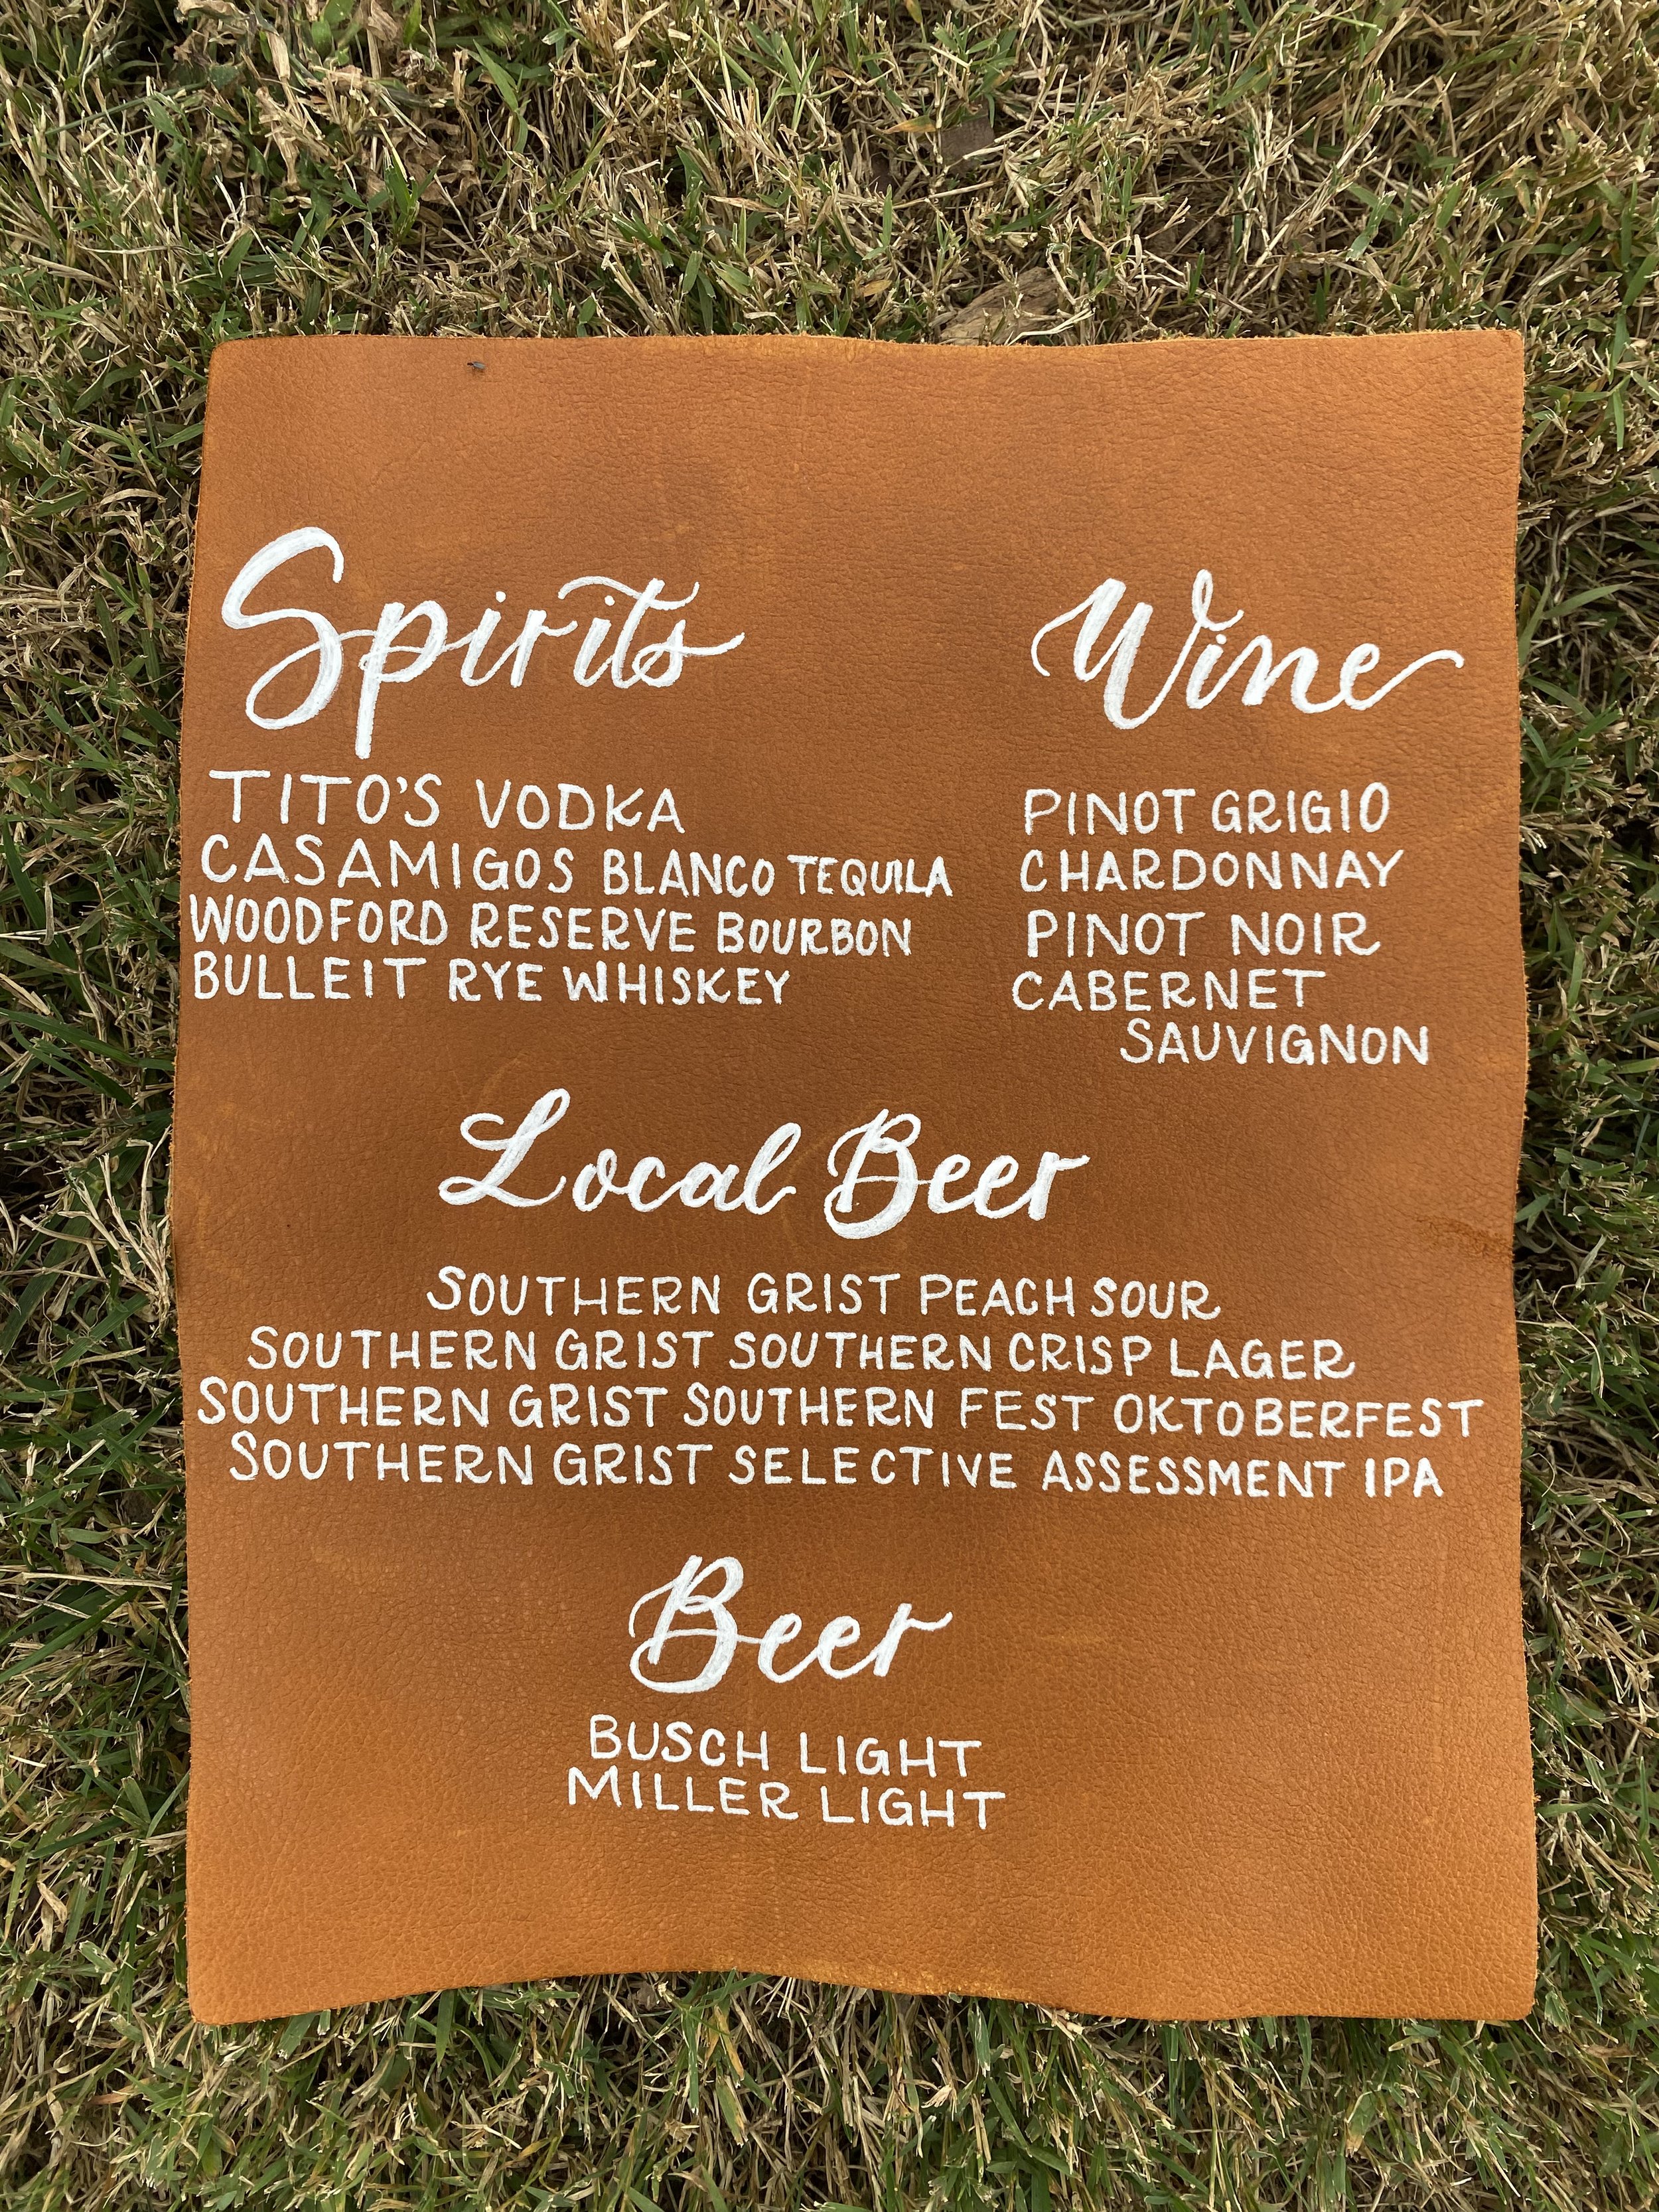 Spirits
TITO'S VODKA
CASAMIGOS BLANCO TEQUILA
WOODFORD RESERVE BOURBON
BULLEIT RYE WHISKEY
Wine
PINOT GRIGIO
CHARDONNAY
PINOT NOIR
CABERNET
SAUVIGNON
Local Beer
SOUTHERN GRIST PEACH SOUR
SOUTHERN GRIST SOUTHERN CRISP LAGER
SOUTHERN GRIST SOUTHERN FEST OKTOBERFEST
SOUTHERN GRIST SELECTIVE ASSESSMENT IPA
Beer
BUSCH LIGHT
MILLER LIGHT